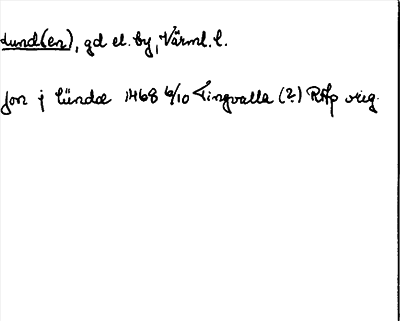 Lund(en), gd el. by, Värml. l.
Jon j lündæ 1468 6/10 Tingvalla (?) RAp orig.